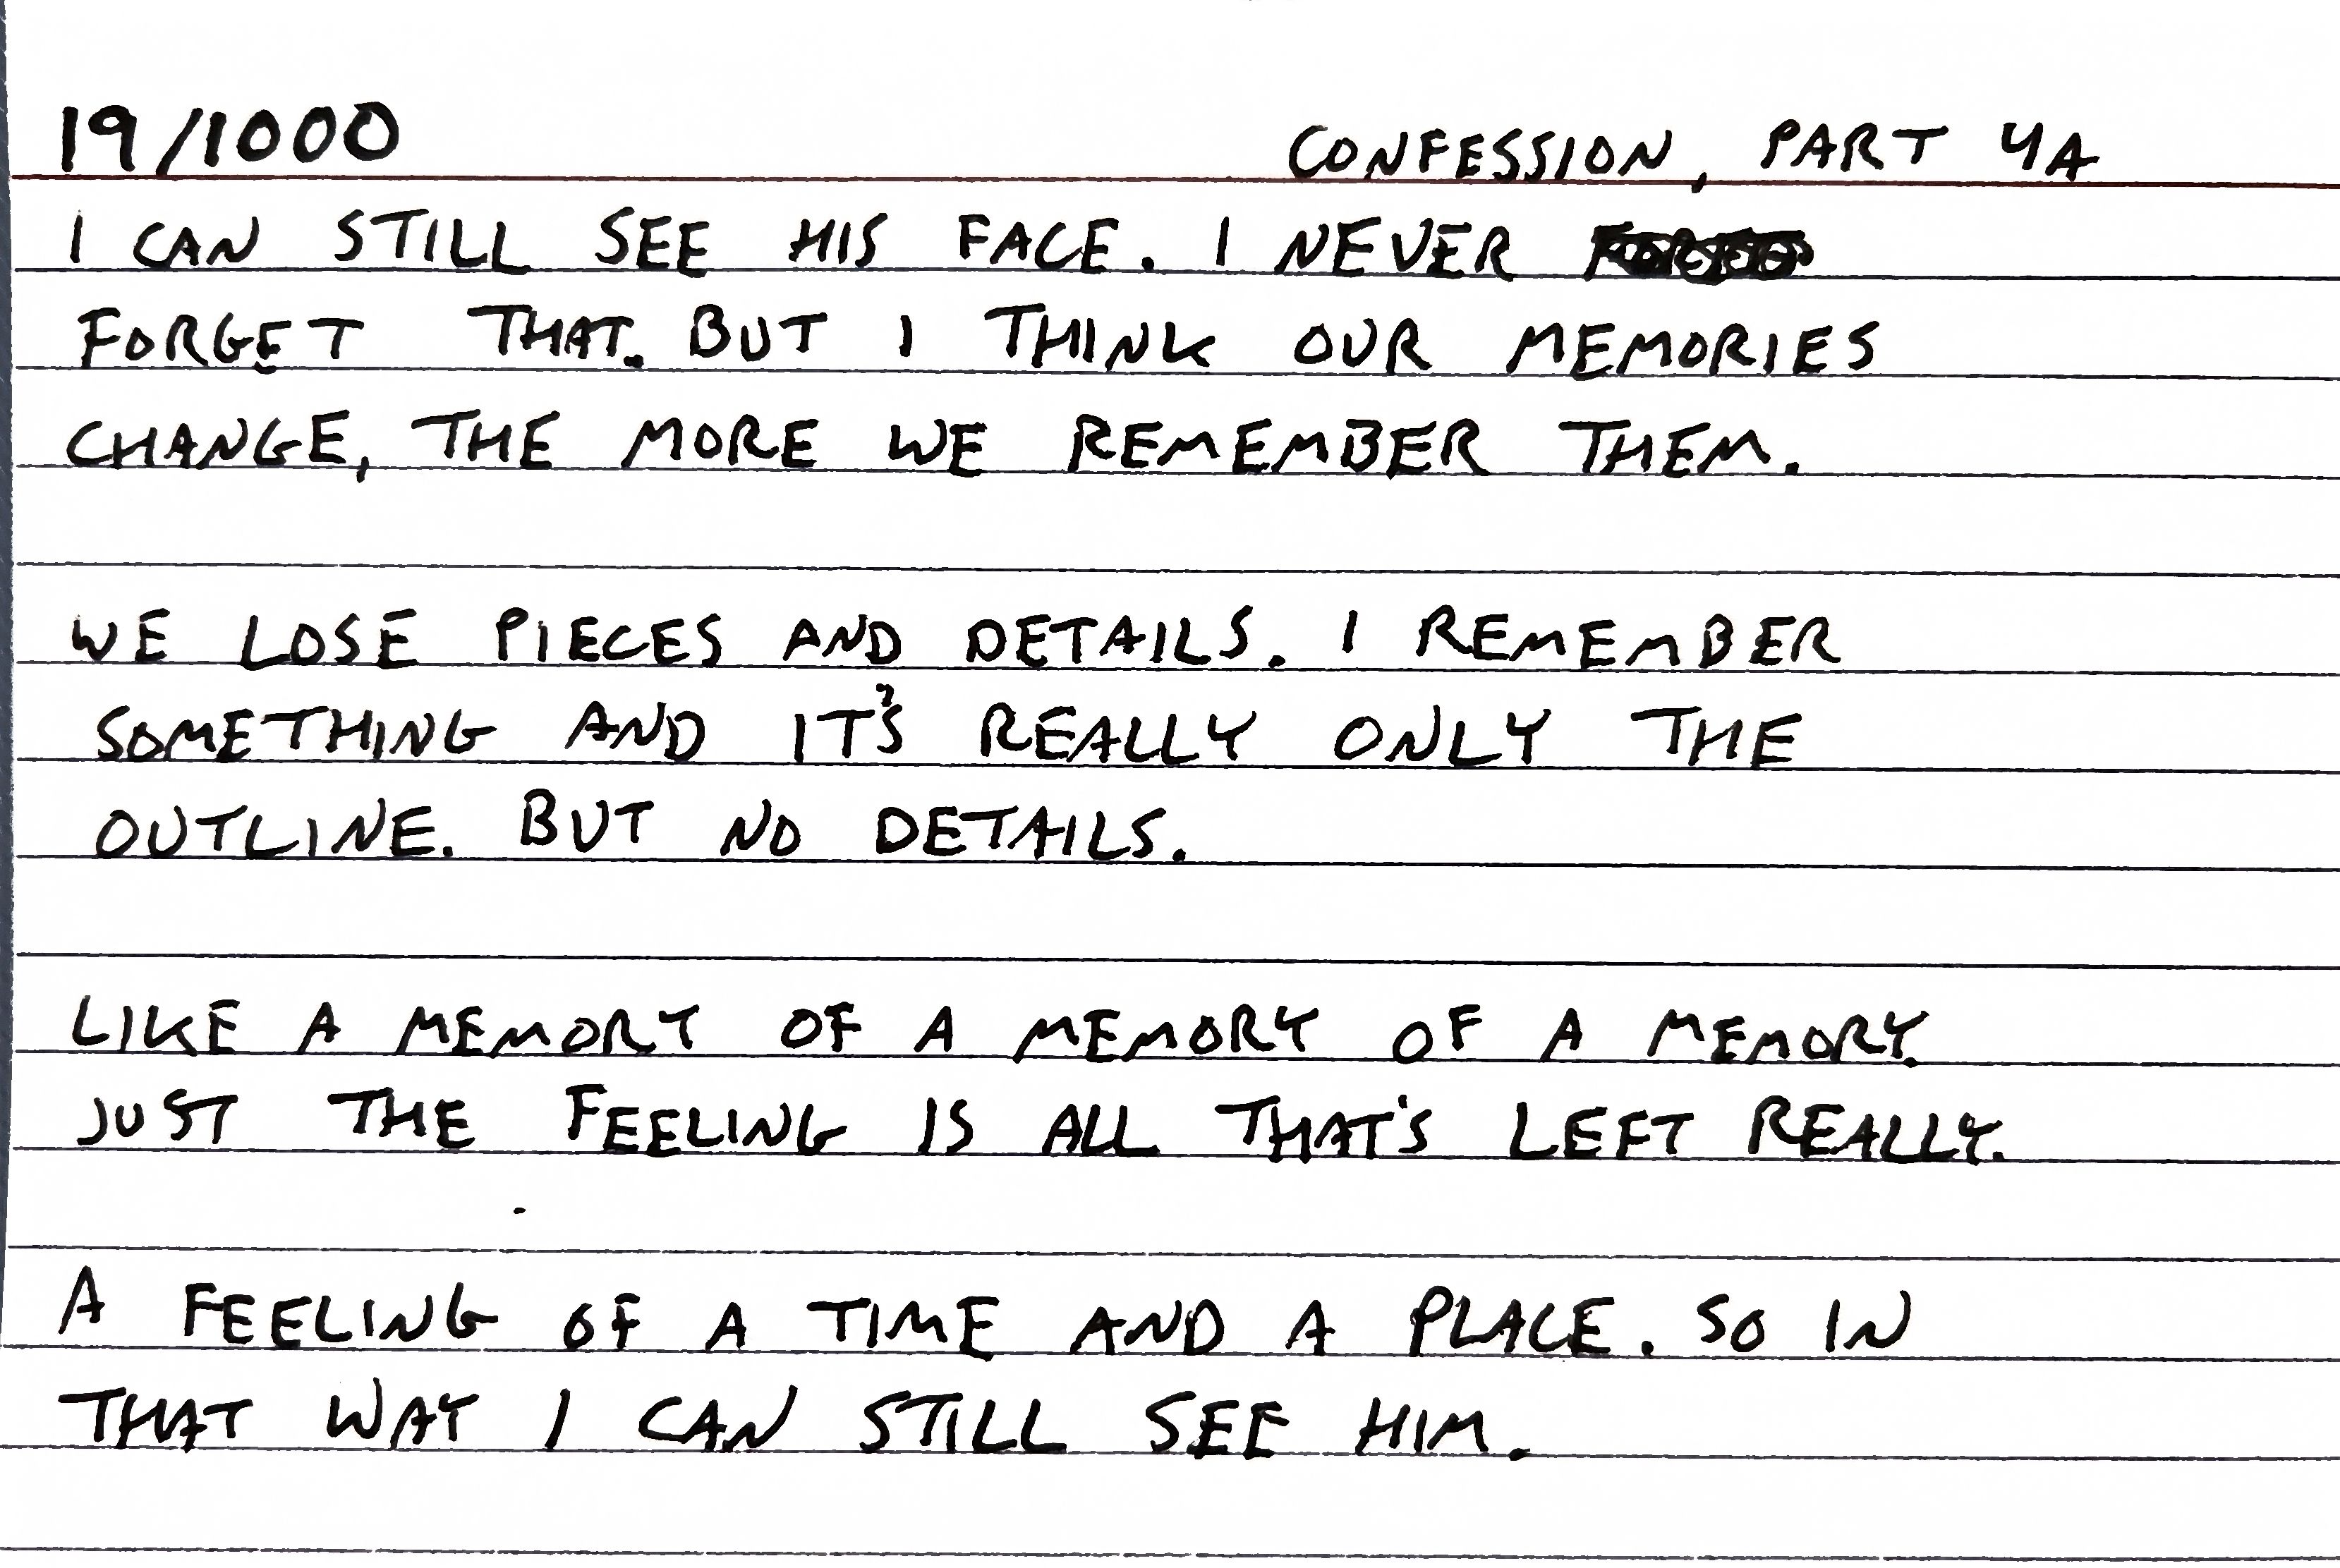 19/1000 CONFESSION, PART 4A
I CAN STILL SEE HIS FACE. I NEVER
FORGET THAT. BUT I THINK OUR MEMORIES
CHANGE, THE MORE WE REMEMBER THEM.
WE LOSE PIECES AND DETAILS. I REMEMBER
SOMETHING AND IT'S REALLY ONLY THE
OUTLINE. BUT NO DETAILS.
LIKE A MEMORY OF A MEMORY OF A MEMORY.
JUST THE FEELING IS ALL THAT'S LEFT REALLY.
A FEELING OF A TIME AND A PLACE. SO IN
THAT WAY I CAN STILL SEE HIM.